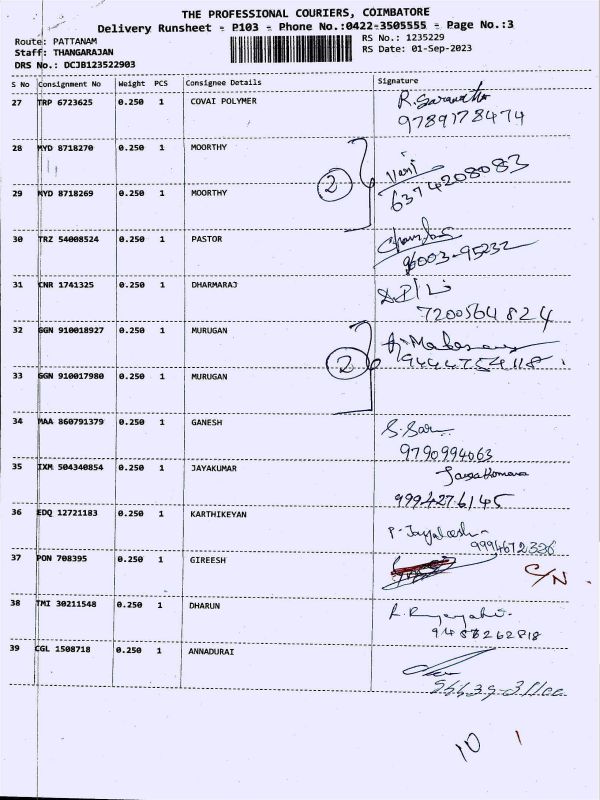 THE PROFESSIONAL COURIERS, COIMBATORE
Delivery Runsheet - P103 - Phone No.:0422-3505555 - Page No.:3
Route: PATTANAM
RS No.: 1235229
Staff: THANGARAJAN
RS Date: 01-Sep-2023
DRS No.: DCJB123522903
S No Consignment No Weight PCS Consignee Details Signature
27 TRP 6723625 0.250 1 COVAI POLYMER
9789178474
28 MYD 8718270 0.250 1 MOORTHY
2
6374208083
29 MYD 8718269 0.250 1 MOORTHY
30 TRZ 54008524 0.250 1 PASTOR
96003-95232
31 CNR 1741325 0.250 1 DHARMARAJ
7200564824
32 GGN 910018927 0.250 1 MURUGAN
2
9444754118
33 GGN 910017980 0.250 1 MURUGAN
34 MAA 860791379 0.250 1 GANESH
9790994063
35 IXM 504340854 0.250 1 JAYAKUMAR
9994276145
36 EDQ 12721183 0.250 1 KARTHIKEYAN
9994672326
37 PON 708395 0.250 1 GIREESH
C/N
38 TMI 30211548 0.250 1 DHARUN
9488262818
39 CGL 1508718 0.250 1 ANNADURAI
10 1